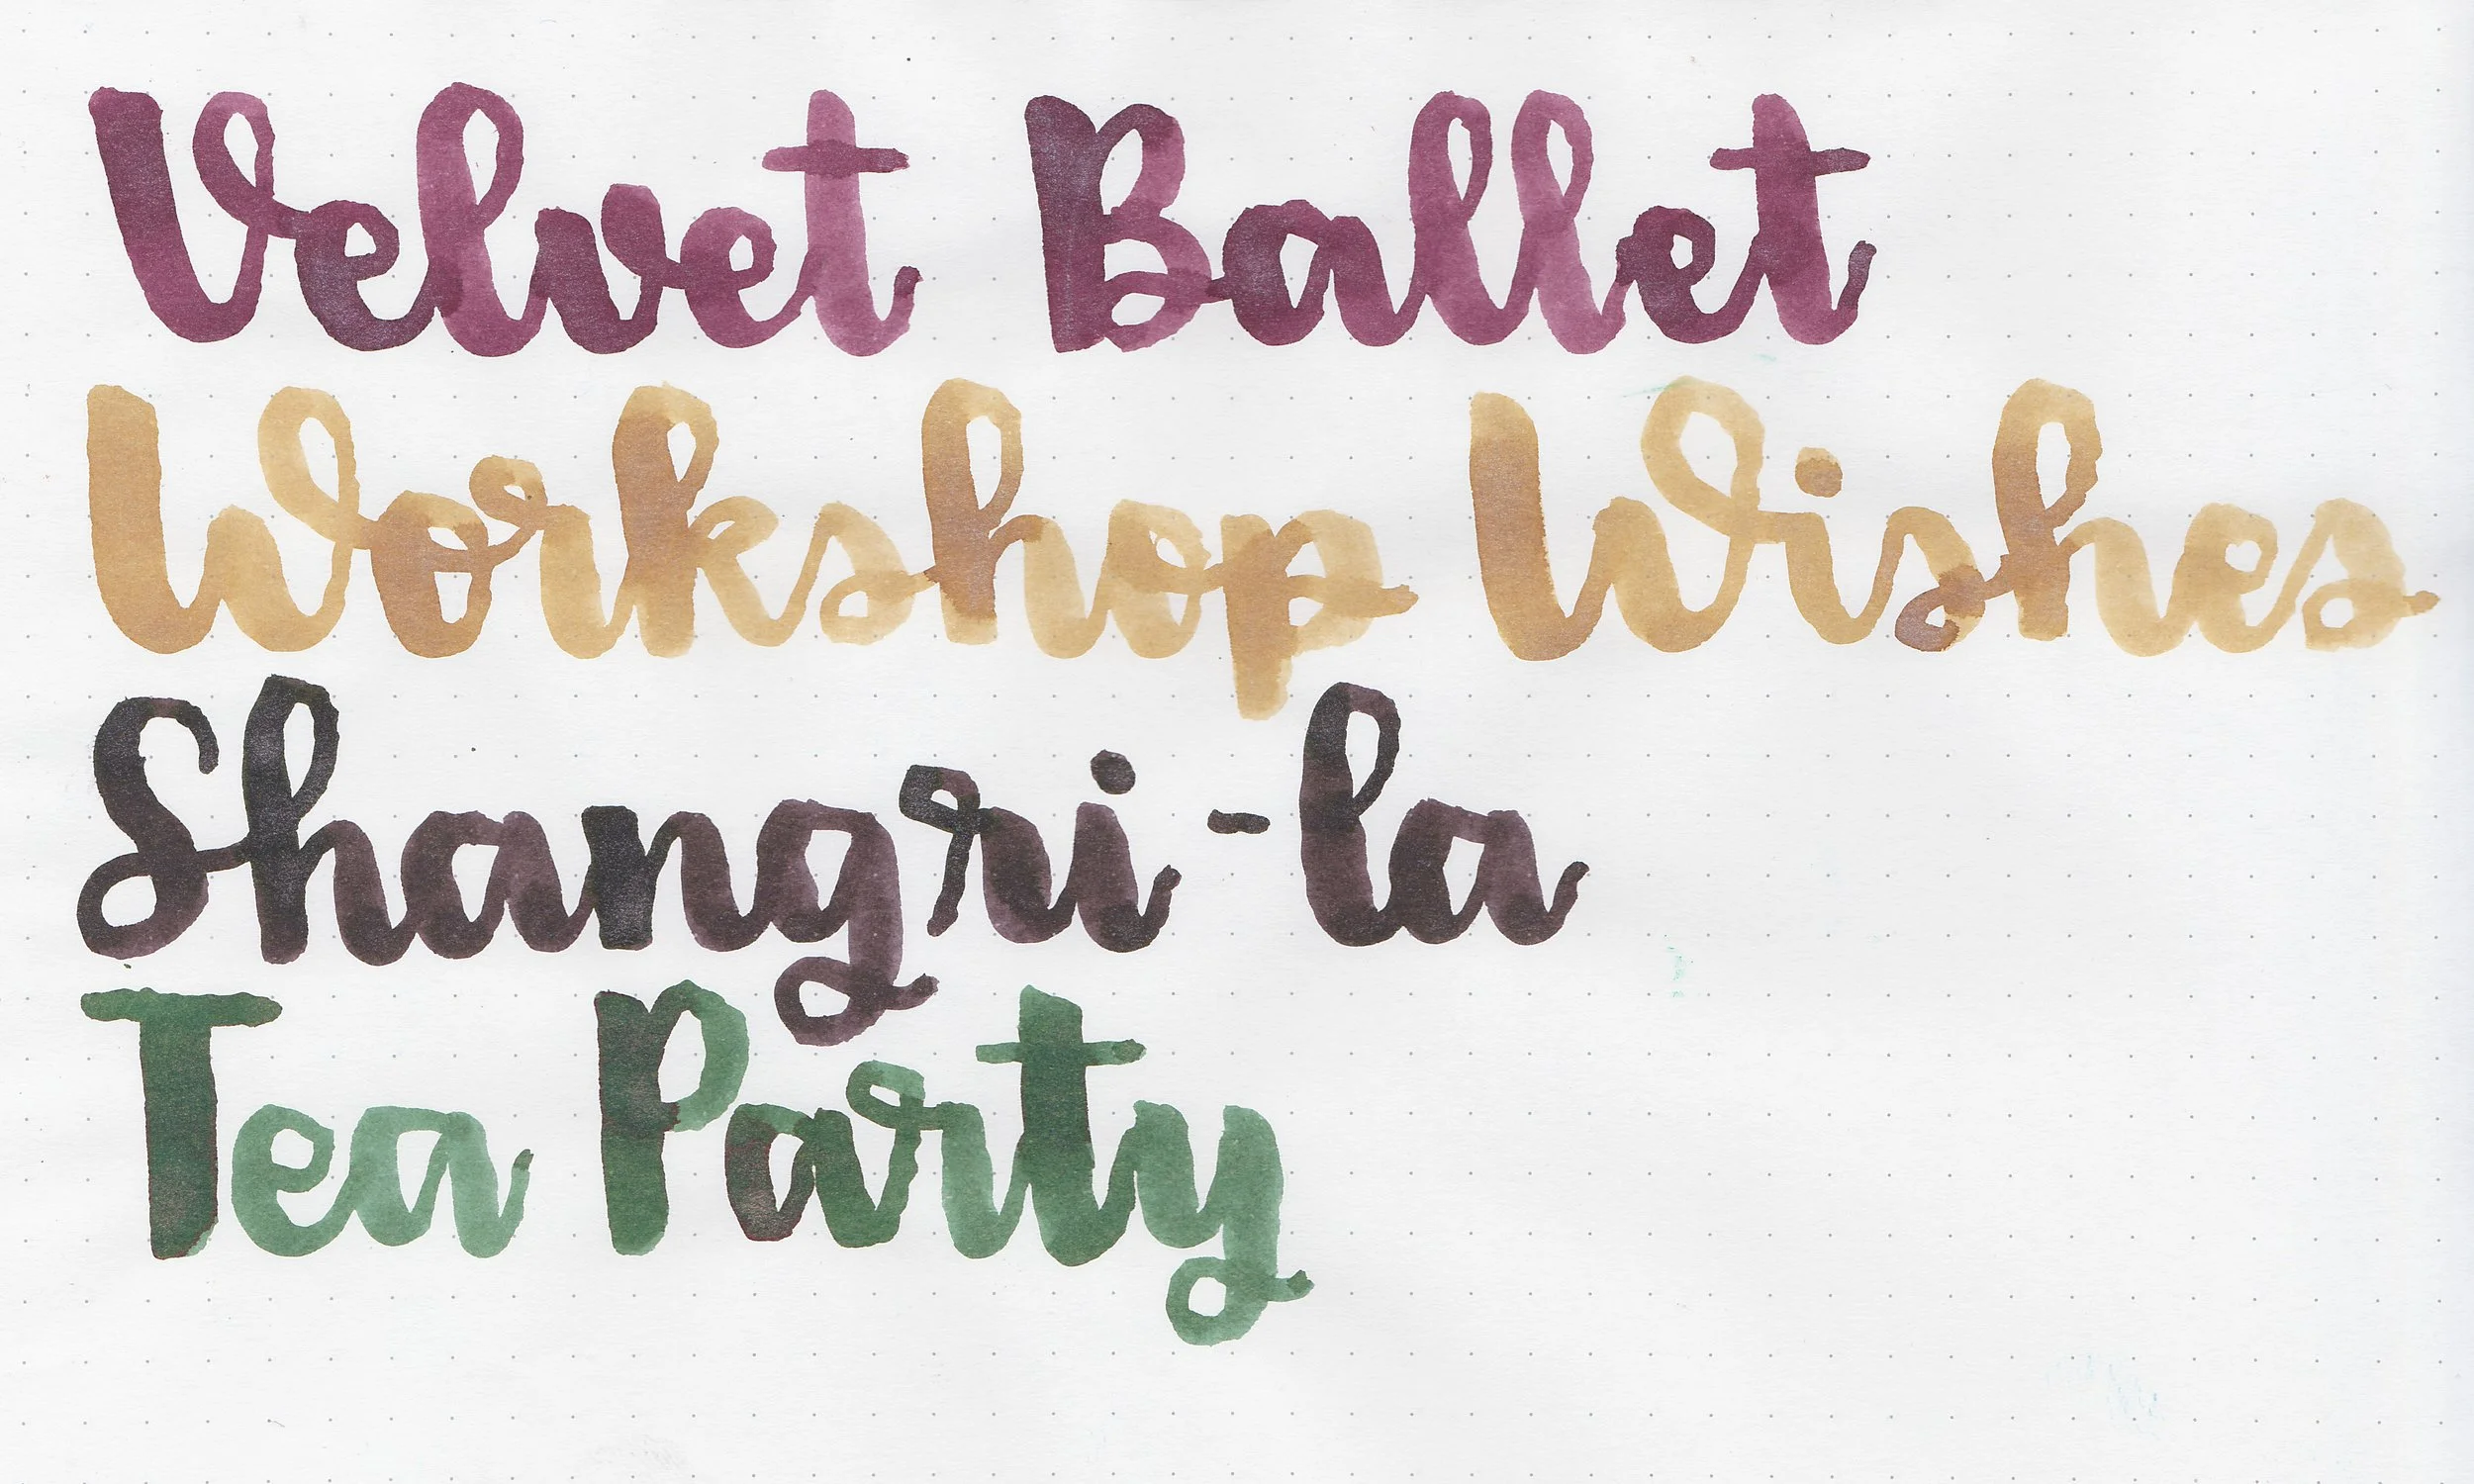 Velvet Ballet
Workshop Wishes
Shangri-la
Tea Party